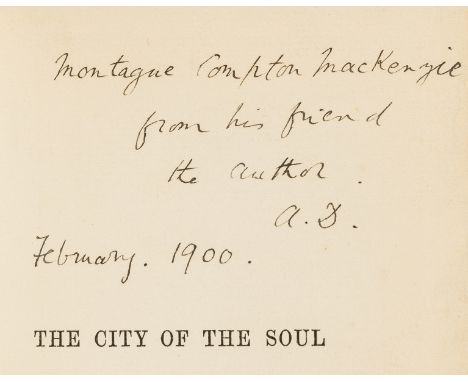 Montague Compton MacKenzie
from his friend
the author.
A.D.
February. 1900.
THE CITY OF THE SOUL